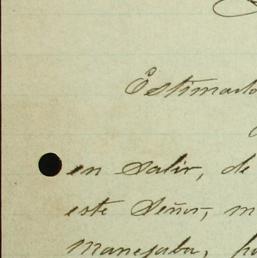 Estimado
en salir, de
este Señor, m
manejaba, po